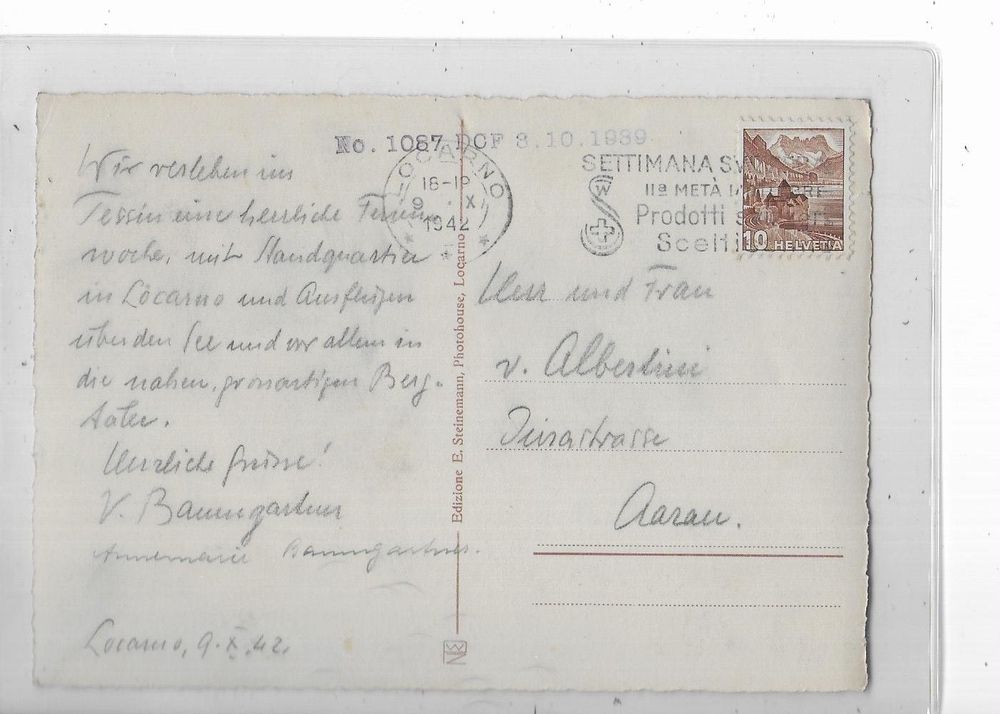 No. 1087 DCF 3.10.1939
LOCARNO
18-19
9. X.
1942
SETTIMANA
IIa METÀ
Prodotti
Scelti
10 HELVETIA
Wir verleben im
Tessin eine herrliche Ferien-
woche, mit Standquartier
in Locarno und Ausflügen
über den See und vor allem in
die nahen, grossartigen Berg-
täler.
Herzliche Grüsse!
V. Baumgartner
Annemarie Baumgartner.
Locarno, 9. X. 42.
Edizione E. Steinemann, Photohouse, Locarno
Herr und Frau
v. Albertini
Jurastrasse
Aarau.